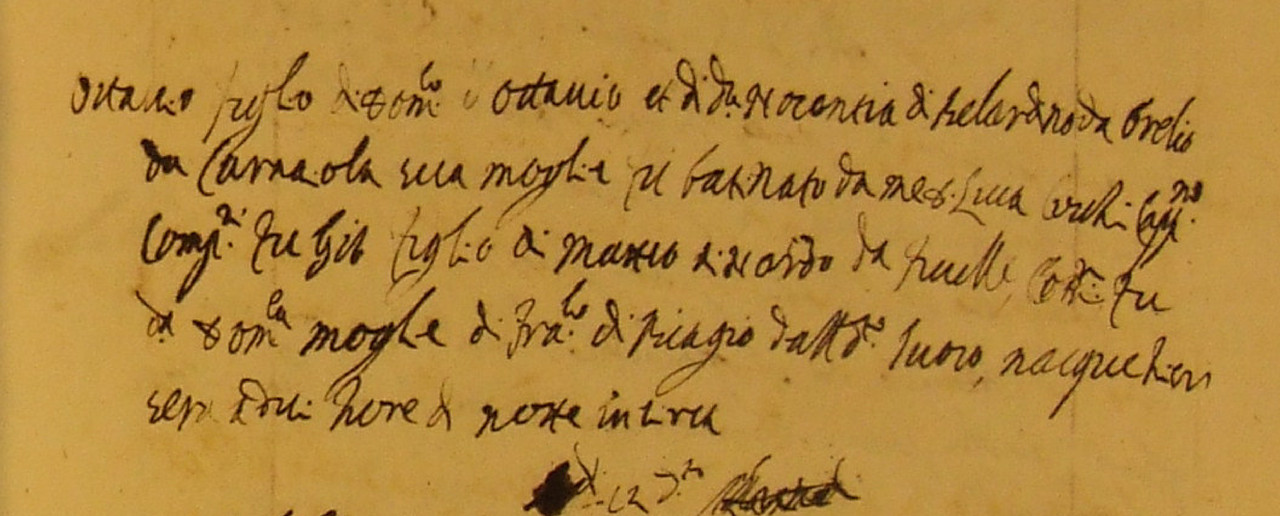 Ottavio figlio di Dom.co d'Ottavio et di d.a Nocentia di belardino da Orelio
da Carnaiola sua moglie fu battizzato da me D. Luca
Comp.ri fu Gio figlio di Matteo di Nardo da Com.e fu
d.a Dom.ca moglie di Fra.co di Biagio dall d.o luoco, nacque hieri
sera a doi hore di notte in circa
d 12 d.to